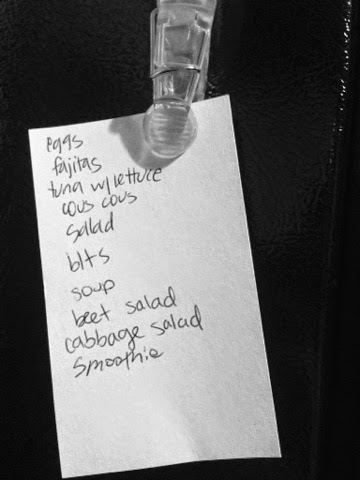 eggs
fajitas
tuna w/ lettuce
cous cous
salad
blts
soup
beet salad
cabbage salad
smoothie